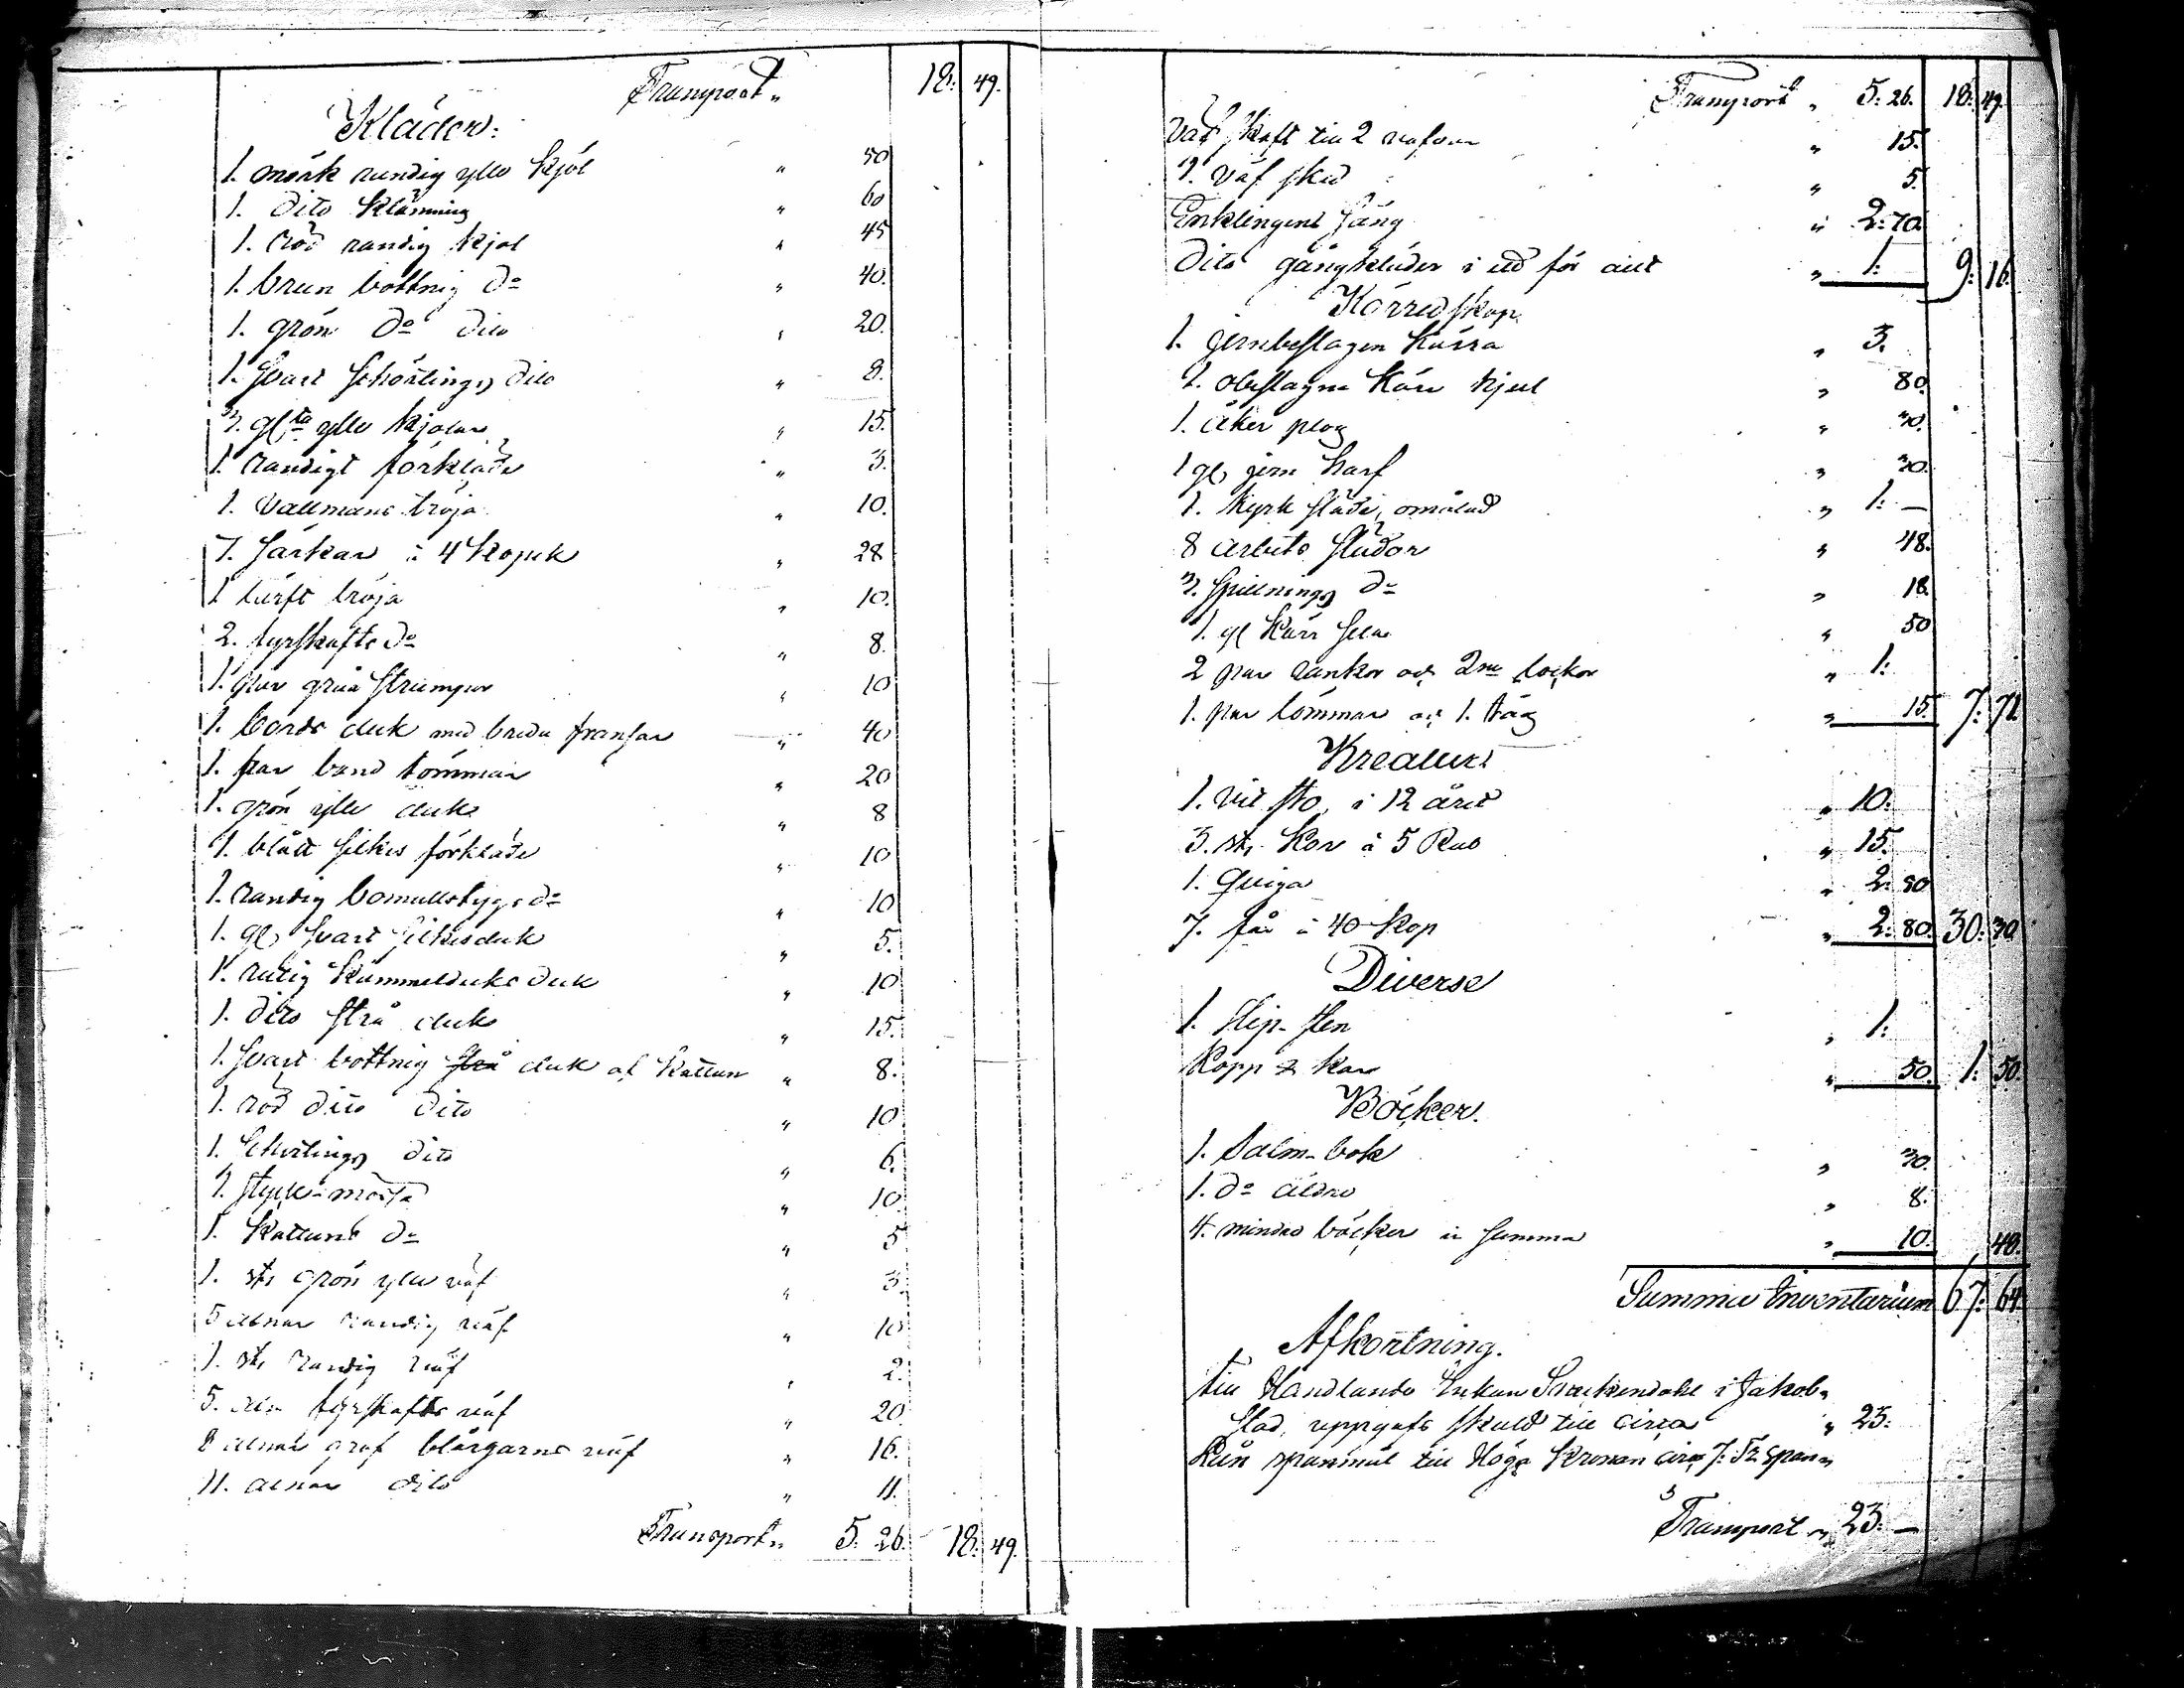 Transport „ 18: 49.
Kläder:
1. mörk randig ylle kjol „ 50
1. Dito klänning „ 60
1. röd randig kjol „ 45
1. brun bottnig do „ 40.
1. grön do dito „ 20.
1. svart schörtings dito „ 8.
3. glta ylle kjolar „ 15.
1. randigt förkläde „ 3.
1. vallmans tröja „ 10.
7. särkar à 4 kopek „ 28
1 lärft tröja „ 10.
2. tyrskafts do „ 8.
1. par gråa strumpor „ 10
1. bords duk med breda fransar „ 40
1. par band tömmar „ 20
1. grön ylle duk „ 8
1. blått silkes förkläde „ 10
1. randig bomullstygs do „ 10
1. gl. svart silkesduk „ 5.
1. rutig kammelduks duk „ 10
1. dito strå duk „ 15.
1. svart bottnig duk af kattun „ 8.
1. röd dito dito „ 10
1. schertings dito „ 6.
1. stycke mössa „ 10
1. kattuns do „ 5
1. st. grön ylle väf „ 3.
5 alnar randig väf „ 10
1. st. randig väf „ 2.
5. aln tyrskafts väf „ 20
8 alnar graf blårgarns väf „ 16.
11. alnar dito „ 11.
Transport „ 5. 26. 18: 49.
Transport „ 5: 26. 18: 49.
Väf skaft till 2 väfvar „ 15.
1. väf sked „ 5.
Enklingens säng „ 2: 70.
Dito gångkläder i ett för allt „ 1: 9: 16.
Körredskap.
1. jernbeslagen kärra „ 3.
1. obeslagna kärr hjul „ 80
1. åker plog „ 30.
1 gl. jern harf „ 30.
1. kyrk släde, omålad „ 1: —
8 arbets slädor „ 48.
3. spillnings do „ 18.
1. gl kärr sela „ 50
2 par rankor och 2ne lockor „ 1:
1. par tömmar och 1. tåg „ 15. 7: 71
Kreatur:
1. vit sto, i 12 året „ 10.
3. st. kor à 5 Rub „ 15.
1. quiga „ 2: 50
7. får à 40 kop „ 2: 80. 30: 30
Diverse
1. slip-sten „ 1:
Kopp kar „ 50. 1: 50.
Böcker.
1. Salm-bok „ 30.
1. do äldre „ 8.
4. mindre böcker in summa „ 10. 48.
Summa Inventarium 67: 64.
Afkortning.
till Handlands Enkan i Jakob-
stad, uppgafs skuld till cirka „ 23:
Lån spanmål till Höga Kronan circa 7: spann
Transport „ 23. —